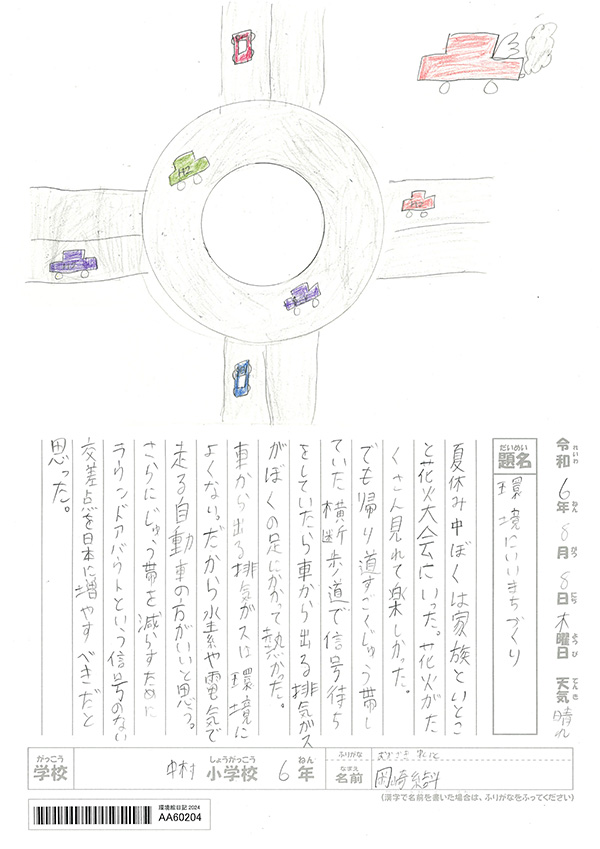 令和6年8月8日木曜日 天気 晴れ
れいわ ねん がつ にち ようび てんき
だいめい
題名 環境にいいまちづくり
夏休み中ぼくは家族といとこ
と花火大会にいった。花火がた
くさん見れて楽しかった。
でも帰り道すごくじゅう帯し
ていた。横断歩道で信号待ち
をしていたら車から出る排気ガス
がぼくの足にかかって熱かった。
車から出る排気ガスは環境に
よくない。だから水素や電気で
走る自動車の方がいいと思う。
さらにじゅう帯を減らすために
ラウンドアバウトという信号のない
交差点を日本に増やすべきだと
思った。
がっこう しょうがっこう ねん
学校 中村 小学校 6年
ふりがな おかざき
なまえ
名前 岡崎
(漢字で名前を書いた場合は、ふりがなをふってください)
環境絵日記 2024
AA60204